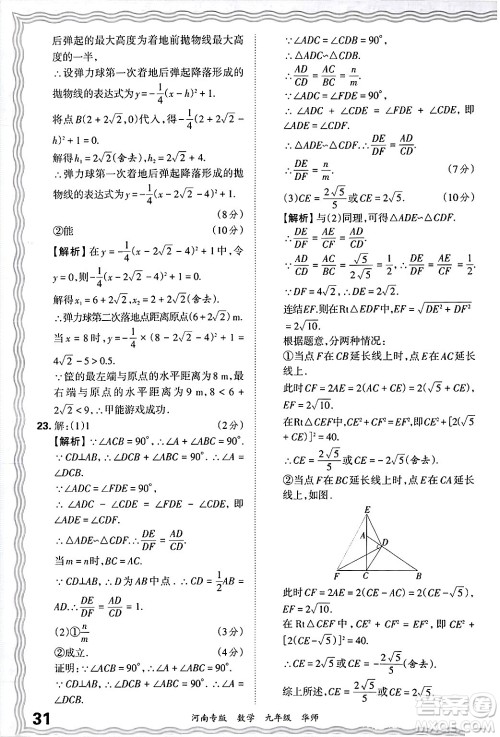 后弹起的最大高度为着地前抛物线最大高度
的一半,
∴设弹力球第一次着地后弹起降落形成的
抛物线的表达式为y=-1/4(x-h)²+1.
将点B(2+2√2,0)代入,得
解得h₁=2√2(舍去),
∴弹力球第一次着地后弹起降落形成的抛
物线的表达式为y=-1/4(x-2-2√2)²+1.
(8分)
②能 (9分)
【解析】在y=-1/4(x-2√2-4)²+1中,令
y=0,则
解得x₁=6+2√2,x₂=2+2√2.
∴弹力球第二次落地点距离原点(6+2√2)m.
当x=8时,y=-1/4×(8-2√2-4)²+1=
4√2-5>0.5.
∵筐的最左端与原点的水平距离为8 m,最
右端与原点的水平距离为9 m,8<6+
2√2<9,∴甲能游戏成功.
23.解:(1)1 (2分)
【解析】∵∠ACB=90°,∴∠A+∠ABC=90°.
∵CD⊥AB,∴∠DCB+∠ABC=90°.∴∠A=
∠DCB.
∵∠FDE=90°,
∵∠ADE+∠EDC=90°,
∴∠ADE=∠CDF.∴△ADE∽△CDF.
∴DE/DF=AD/CD.
当m=n时,BC=AC.
∵CD⊥AB,∴D为AB的中点.∴CD=
AD.∴DE/DF=AD/CD=1.
(2)①n/m (4分)
②成立.
证明:∵∠ACB=90°,∴∠A+∠ABC=90°.
∵CD⊥AB,∴∠DCB+∠ABC=90°.∴∠A=
∠DCB.
∵∠FDE=∠ADC=90°,
∴△ADE∽△CDF.∴DE/DF=AD/CD.
∵∠A=∠DCB,
∵∠ADC=∠CDB=90°,
∴△ADC∽△CDB.
∴AD/CD=AC/BC=n/m.
∴DE/DF=n/m. (7分)
(3)CE=2√5/5或CE=2√5. (10分)
【解析】与(2)同理,可得△ADE∽△CDF.
∴DE/DF=AD/CD=AC/BC
∵AD/CD=AC/BC=√5/2√5=1/2,∴DE/DF=1/2.
∴DF=2DE=4√2.
连结EF,在Rt△FDE中,EF=√DE²+DF²=
2√10.
根据题意,分两种情况:
①当点F在CB延长线上时,点E在AC延长
线上.
此时CF=2AE=2(AC+CE)=2(√5+CE),
EF=2√10.
在Rt△CEF中,CE²+CF²=EF²,∴CE²+[2(√5+CE)]²=40.
∴CE=2√5/5或CE=-2√5(舍去).
②当点F在BC延长线上时,点E在CA延长
线上,如图.
E
A
D
F C B
此时CF=2AE=2(CE-AC)=2(CE-√5),
EF=2√10.
在Rt△CEF中,CE²+CF²=EF²,∴CE²
+[2(CE-√5)]²=40.
∴CE=2√5或CE=-2√5/5(舍去).
综上所述,CE=2√5/5或CE=2√5.
31
河南专版 数学 九年级 华师